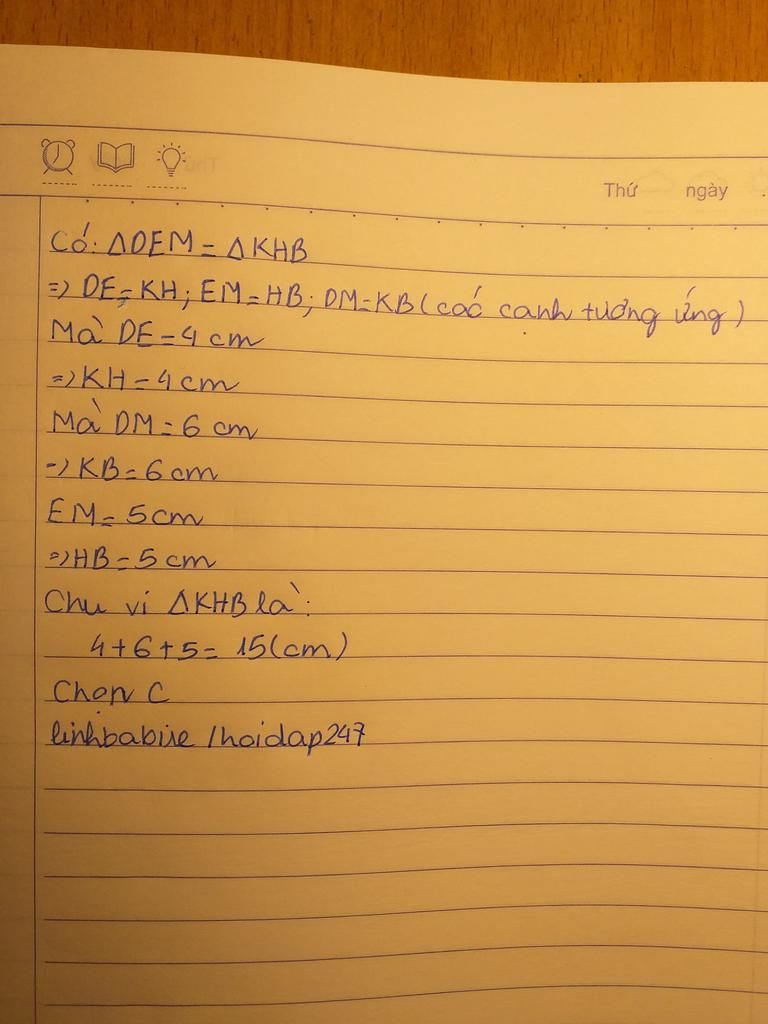 Thứ ngày .
Có: ΔDEM = ΔKHB
=> DE = KH; EM = HB; DM = KB (các cạnh tương ứng)
Mà DE = 4 cm
=> KH = 4 cm
Mà DM = 6 cm
=> KB = 6 cm
EM = 5cm
=> HB = 5 cm
Chu vi ΔKHB là:
4 + 6 + 5 = 15 (cm)
Chọn C
/hoidap247